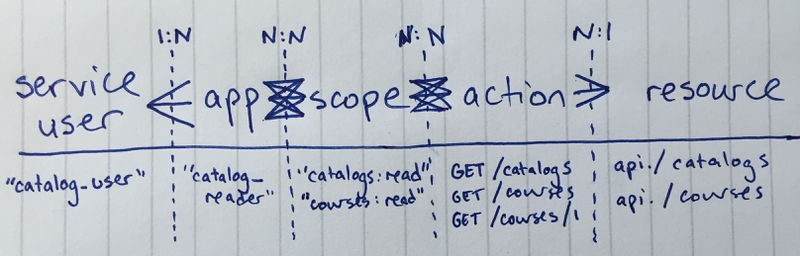 1:N N:N N:N N:1
service user app scope action resource
"catalog-user" "catalog-reader" "catalogs:read" GET /catalogs api./catalogs
"courses:read" GET /courses api./courses
GET /courses/1